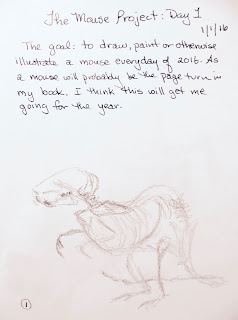 The Mouse Project: Day 1
1/1/16
The goal: to draw, paint or otherwise
illustrate a mouse everyday of 2016. As
a mouse will probably be the page turn in
my book, I think this will get me
going for the year.
1